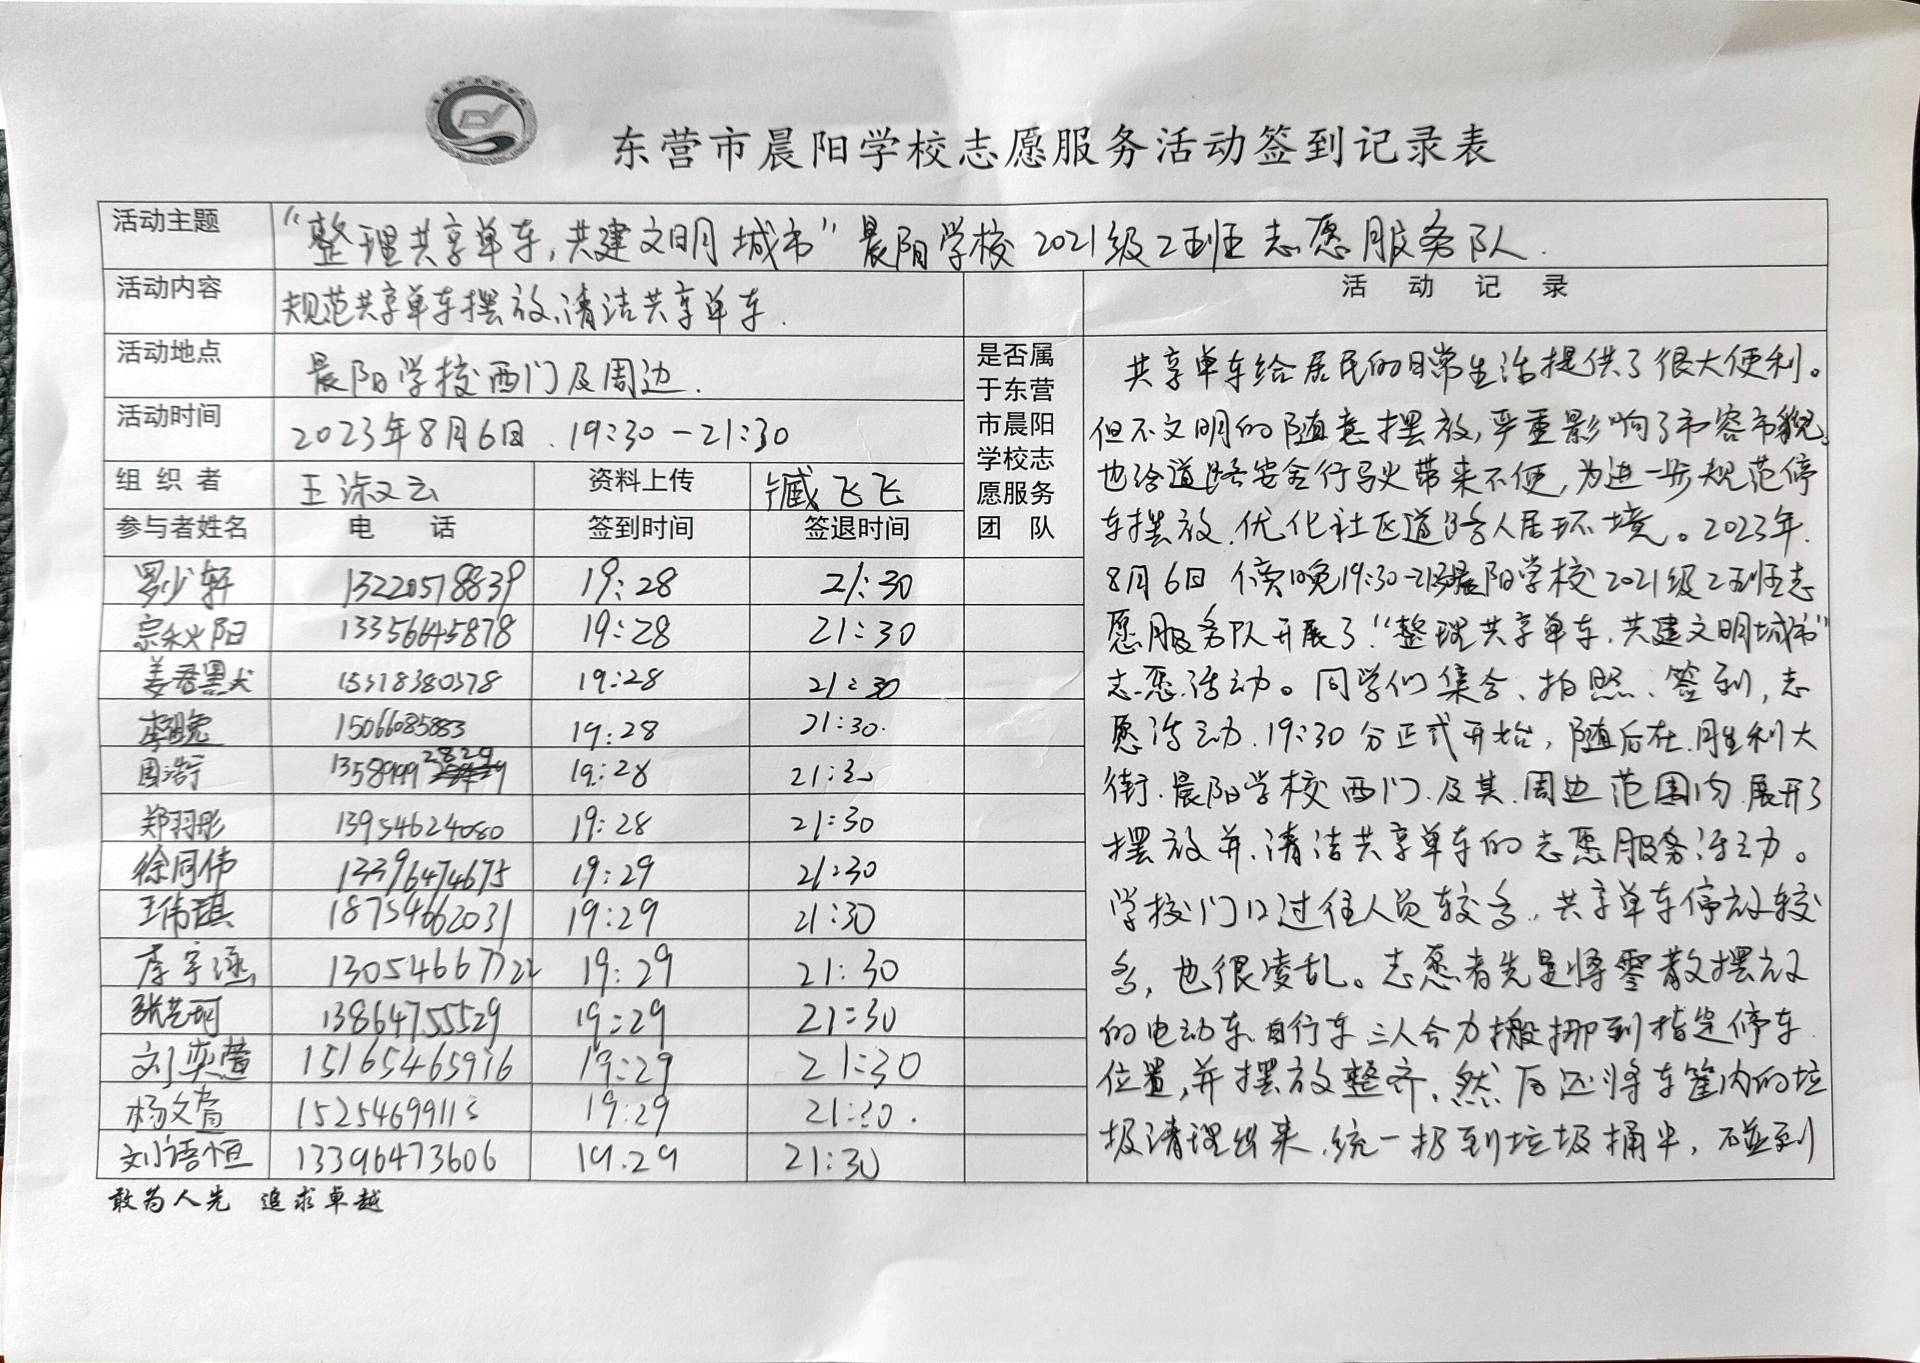 东营市晨阳学校志愿服务活动签到记录表
活动主题 “整理共享单车,共建文明城市”晨阳学校2021级2班 志愿服务队.
活动内容 规范共享单车摆放、清洁共享单车.
活动地点 晨阳学校西门及周边.
活动时间 2023年8月6日.19:30-21:30
组织者 王淑云 资料上传 臧飞飞
参与者姓名 电话 签到时间 签退时间
是否属
于东营
市晨阳
学校志
愿服务
团队
罗少轩 13220518839 19:28 21:30
宗秋阳 13356645878 19:28 21:30
姜君 15318380378 19:28 21:30
李晚 15066085883 19:28 21:30.
周浩宁 13589992829 19:28 21:30
郑羽彤 13954624080 19:28 21:30
徐同伟 13396474675 19:29 21:30
王伟琪 18754662031 19:29 21:30
李宇涵 13054667722 19:29 21:30
张艺珂 13864755529 19:29 21:30
刘奕萱 15165465916 19:29 21:30
杨文 15254699113 19:29 21:30.
刘语恒 13396473606 19.29 21:30
活动记录
共享单车给居民的日常生活提供了很大便利。
但不文明的随意摆放,严重影响了市容市貌。
也给道路安全行驶带来不便,为进一步规范停
车摆放、优化社区道路人居环境。2023年.
8月6日 傍晚19:30-21:30晨阳学校2021级2班志
愿服务队开展了“整理共享单车,共建文明城市”
志愿活动。同学们集合、拍照、签到,志
愿活动.19:30分正式开始,随后在胜利大
街、晨阳学校西门及其周边范围内展开了
摆放并清洁共享单车的志愿服务活动。
学校门口过往人员较多,共享单车停放较
多,也很凌乱。志愿者先是将零散摆放
的电动车、自行车三人合力搬挪到指定停车
位置,并摆放整齐,然后还将车筐内的垃
圾清理出来,统一扔到垃圾桶中,碰到
敢为人先 追求卓越